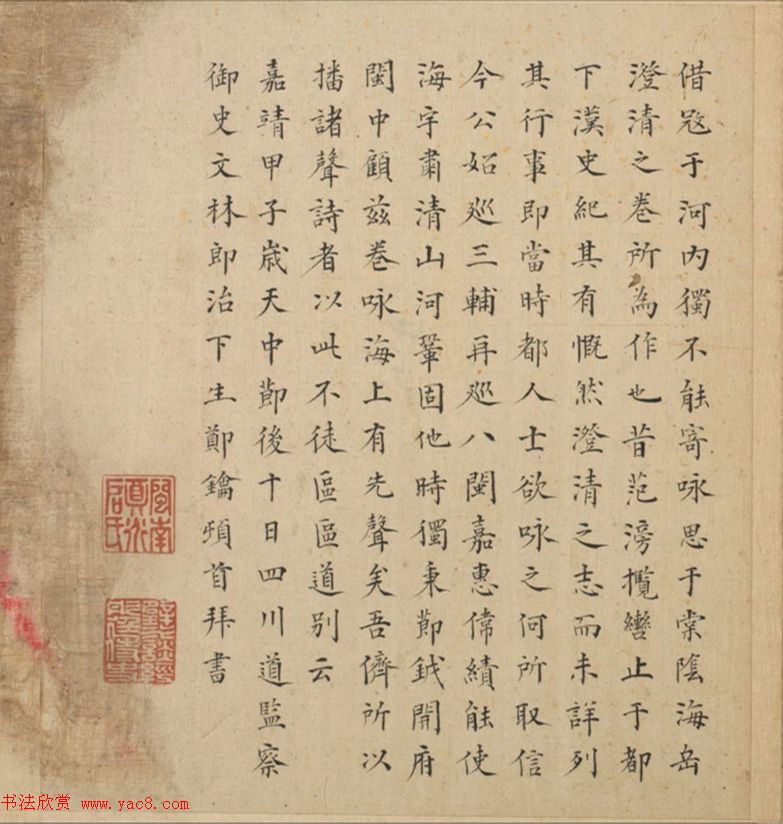 借冦于河内獨不能寄咏思于棠陰海岳
澄清之巻所為作也昔范滂攬轡止于都
下漢史紀其有慨然澄清之志而未詳列
其行事即當時都人士欲咏之何所取信
今公始廵三輔再廵八閩嘉惠偉績能使
海宇肅清山河鞏固他時獨秉節鉞開府
閩中顧兹巻咏海上有先聲矣吾儕所以
播諸聲詩者以此不徒區區道別云
嘉靖甲子嵗天中節後十日四川道監察
御史文林郎治下生鄭鑰頓首拜書
书法欣赏 www.yac8.com